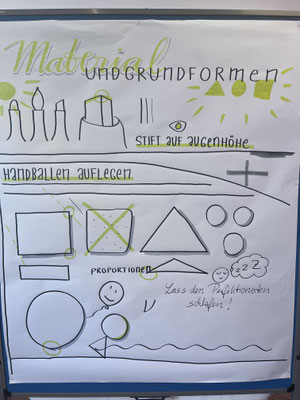 Material
UNDGRUNDFORMEN
STIFT AUF AUGENHÖHE
HANDBALLEN AUFLEGEN
PROPORTIONEN
zzzZ
Lass den Perfektionisten
schlafen!